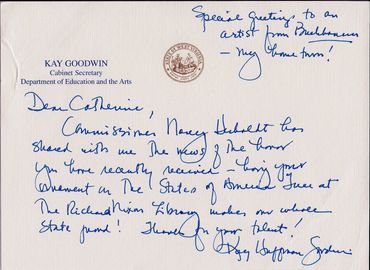 Special Greetings to an
artist from Buckhannon
– my home town!
KAY GOODWIN
Cabinet Secretary
Department of Education and the Arts
Dear Catherine,
Commissioner Nancy has
shared with me the news of the honor
you have recently received – having your
ornament on the States of America Tree at
The Richard Nixon Library makes our whole
State proud! Thanks for your talent!
Kay Huffman Goodwin